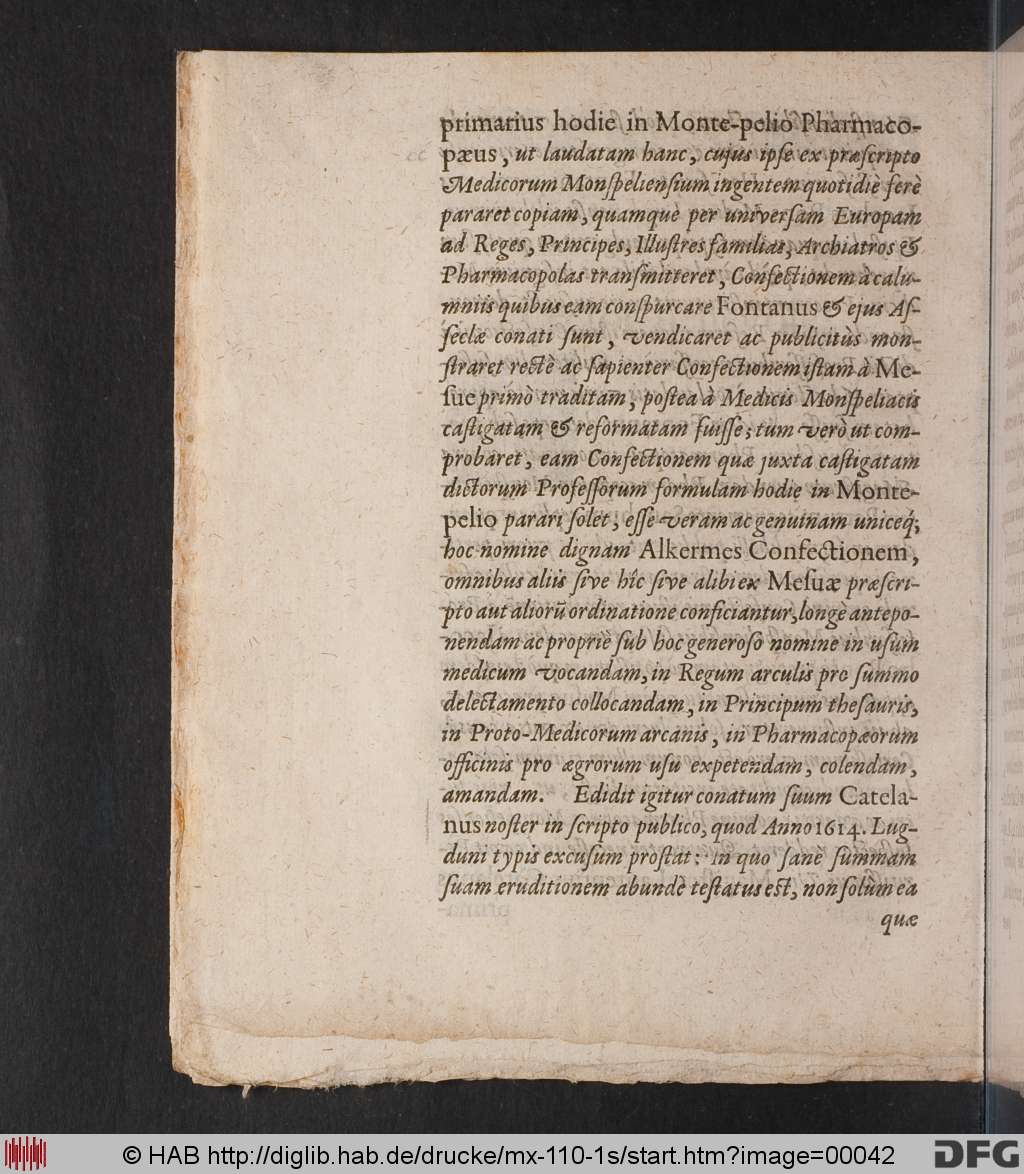 primarius hodie in Monte-pelio Pharmaco-
pæus, ut laudatam hanc, cujus ipſe ex præſcripto
Medicorum Monſpelienſium ingentem quotidiè ferè
pararet copiam, quamquè per univerſam Europam
ad Reges, Principes, Illuſtres familias, Archiatros &
Pharmacopolas tranſmitteret, Confectionem à calu-
mniis quibus eam conſpurcare Fontanus & ejus Aſ-
ſeclæ conati ſunt, vendicaret ac publicitùs mon-
ſtraret rectè ac ſapienter Confectionem iſtam à Me-
ſue primò traditam, poſtea à Medicis Monſpeliacis
caſtigatam & reformatam fuiſſe; tum verò ut com-
probaret, eam Confectionem quæ juxta caſtigatam
dictorum Profeſſorum formulam hodie in Monte-
pelio parari ſolet, eſſe veram ac genuinam uniceq́;
hoc nomine dignam Alkermes Confectionem,
omnibus aliis ſive hîc ſive alibi ex Meſuæ præſcri-
pto aut aliorũ ordinatione conficiantur, longè antepo-
nendam ac propriè ſub hoc generoſo nomine in uſum
medicum vocandam, in Regum arculis pro ſummo
delectamento collocandam, in Principum theſauris,
in Proto-Medicorum arcanis, in Pharmacopæorum
officinis pro ægrorum uſu expetendam, colendam,
amandam. Edidit igitur conatum ſuum Catela-
nus noſter in ſcripto publico, quod Anno 1614. Lug-
duni typis excuſum proſtat: In quo ſanè ſummam
ſuam eruditionem abundè teſtatus eſt, non ſolùm ea
quæ
© HAB http://diglib.hab.de/drucke/mx-110-1s/start.htm?image=00042
DFG